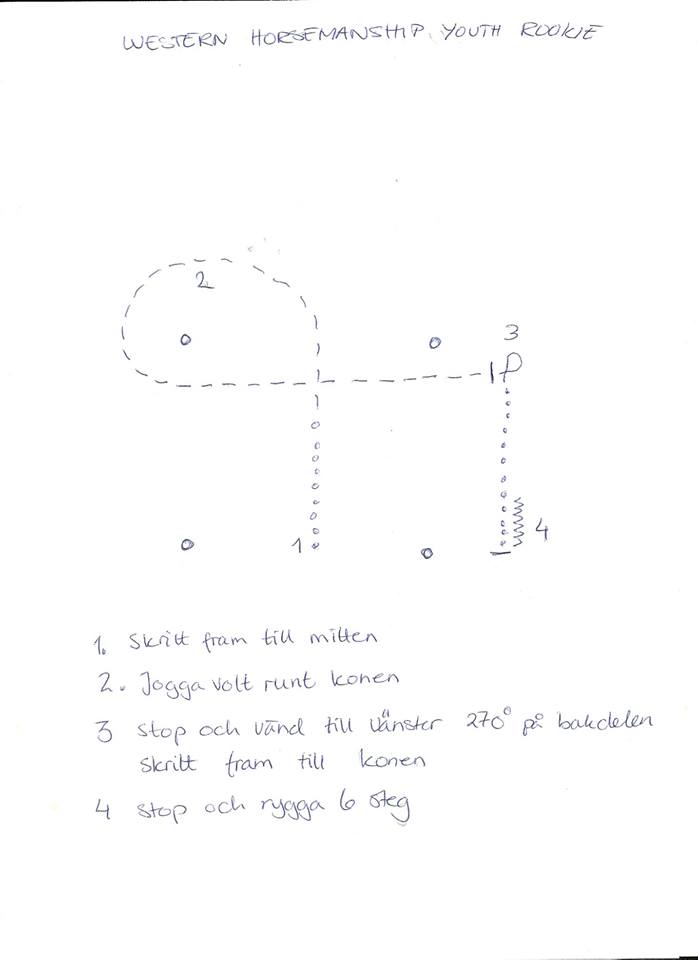 WESTERN HORSEMANSHIP. YOUTH ROOKIE
2
3
1
4
1. Skritt fram till mitten
2. Jogga volt runt konen
3 Stop och vänd till vänster 270° på bakdelen
Skritt fram till konen
4 Stop och rygga 6 steg